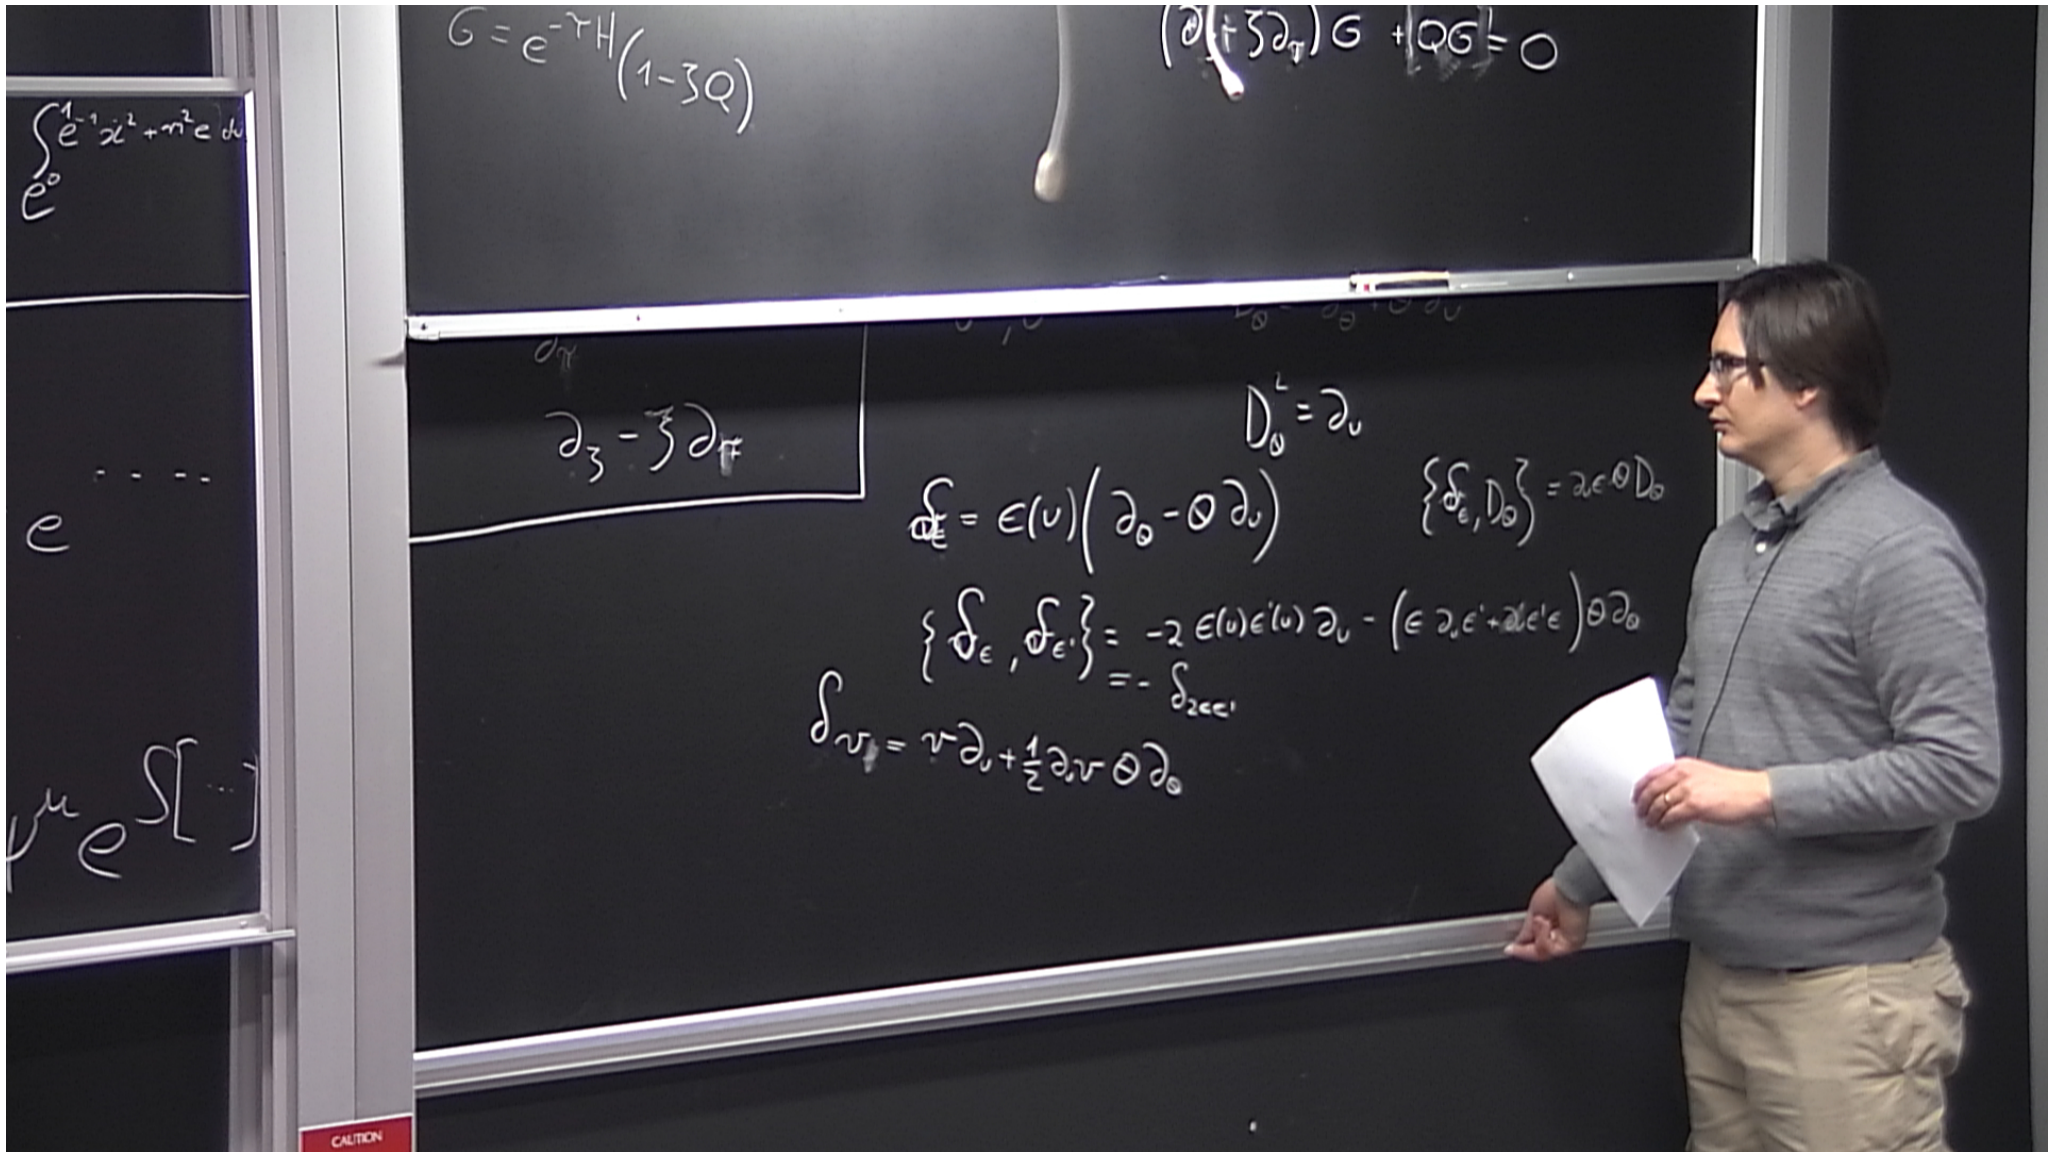 ∫ e⁻¹ẋ² + m²e du
e⁰
e ....
ψ^μ e^{S[...]}
G = e^{-τH}(1-ζQ)
+ QG = 0
D_θ = ∂_θ + θ∂_u
∂_ζ - ζ∂_τ
D_θ² = ∂_u
δ_ε = ε(u)(∂_θ - θ∂_u)
{δ_ε, D_θ} = ∂_uε θD_θ
{δ_ε, δ_ε'} = -2 ε(u)ε'(u) ∂_u - (ε ∂_uε' + ∂_uε'ε)θ∂_θ
= - δ_{2εε'}
δ_v = v∂_u + ½∂_uv θ∂_θ
CAUTION